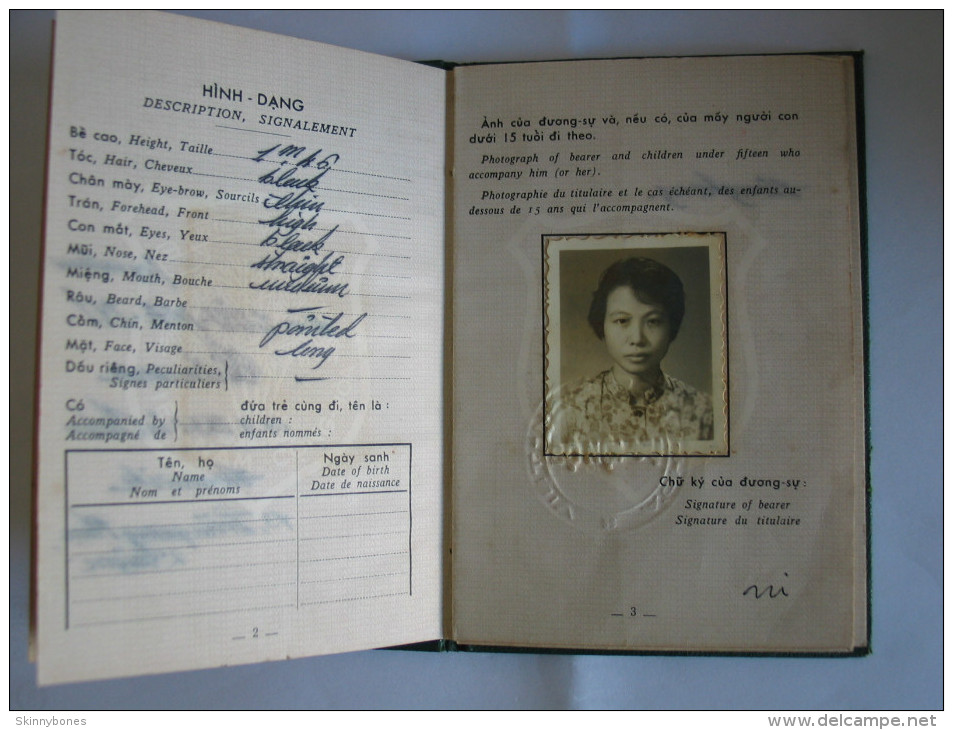 HÌNH - DẠNG
DESCRIPTION, SIGNALEMENT
Bề cao, Height, Taille 1m46
Tóc, Hair, Cheveux black
Chân mày, Eye-brow, Sourcils thin
Trán, Forehead, Front high
Con mắt, Eyes, Yeux black
Mũi, Nose, Nez straight
Miệng, Mouth, Bouche medium
Râu, Beard, Barbe —
Cằm, Chin, Menton pointed
Mặt, Face, Visage long
Dấu riêng, Peculiarities, —
Signes particuliers
Có đứa trẻ cùng đi, tên là :
Accompanied by children :
Accompagné de enfants nommés :
Tên, họ Ngày sanh
Name Date of birth
Nom et prénoms Date de naissance
— 2 —
Ảnh của đương-sự và, nếu có, của mấy người con
dưới 15 tuổi đi theo.
Photograph of bearer and children under fifteen who
accompany him (or her).
Photographie du titulaire et le cas échéant, des enfants au-
dessous de 15 ans qui l'accompagnent.
Chữ ký của đương-sự :
Signature of bearer
Signature du titulaire
— 3 —
Skinnybones
www.delcampe.net